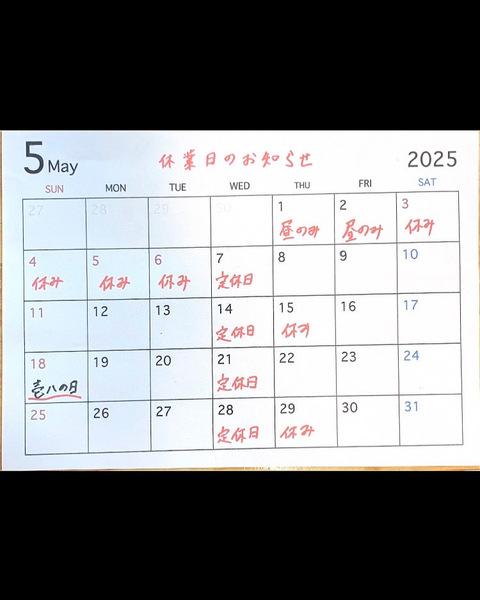 5 May 休業日のお知らせ 2025
SUN MON TUE WED THU FRI SAT
27 28 29 30 1 2 3
昼のみ 昼のみ 休み
4 5 6 7 8 9 10
休み 休み 休み 定休日
11 12 13 14 15 16 17
定休日 休み
18 19 20 21 22 23 24
壱八の日 定休日
25 26 27 28 29 30 31
定休日 休み